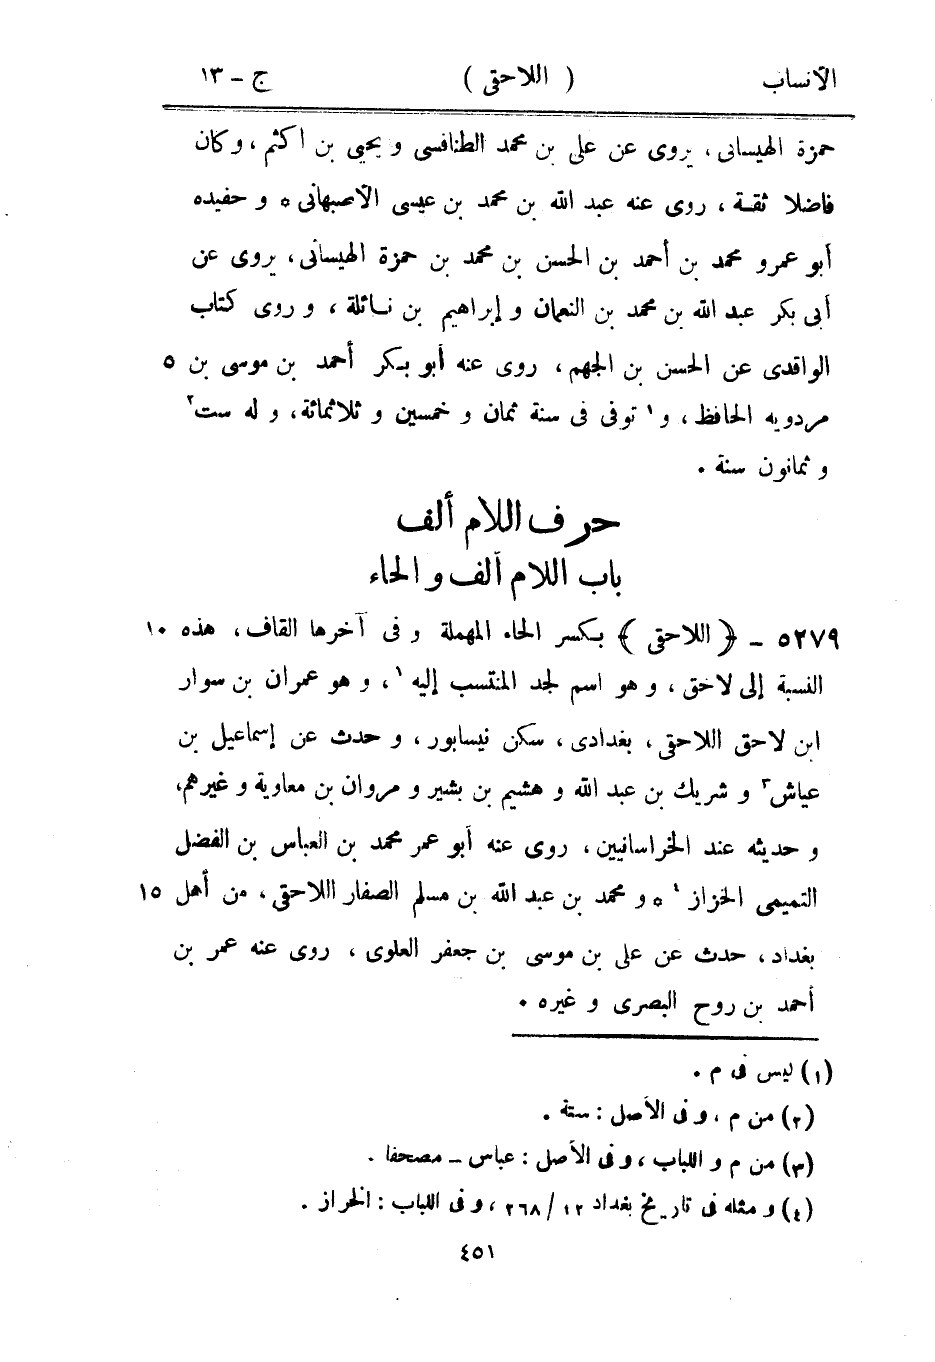 الأنساب ( اللاحقى ) ج – ١٣
حمزة الهيسانى ، يروى عن على بن محمد الطنافسى و يحيى بن أكثم ، و كان
فاضلا ثقـة ، روى عنه عبد الله بن محمد بن عيسى الأصبهانى ٥ و حفيده
أبو عمرو محمد بن أحمد بن الحسن بن محمد بن حمزة الهيسانى ، يروى عن
أبى بكر عبد الله بن محمد بن النعمان و إبراهيم بن نـائلة ، و روى كتاب
الواقدى عن الحسن بن الجهم ، روى عنه أبو بـكر أحمد بن موسى بن ٥
مردويه الحافظ ، و١ توفى فى سنة ثمان و خمسين و ثلاثمائة ، و له ست٢
و ثمانون سنة .
حرف اللام ألف
باب اللام ألف و الحاء
٥٢٧٩ – ﴿ اللاحقى ﴾ بـكسر الحاء المهملة و فى آخرها القاف ، هذه ١٠
النسبة إلى لاحق ، و هو اسم لجد المنتسب إليه١ ، و هو عمران بن سوار
ابن لاحق اللاحقى ، بغدادى ، سكن نيسابور ، و حدث عن إسماعيل بن
عياش٣ و شريك بن عبد الله و هشيم بن بشير و مروان بن معاوية و غيرهم،
و حديثه عند الخراسانيين ، روى عنه أبو عمر محمد بن العباس بن الفضل
التميمى الخزاز٤ ٥ و محمد بن عبد الله بن مسلم الصفار االلاحقى ، من أهل ١٥
بغداد ، حدث عن على بن موسى بن جعفر العلوى ، روى عنه عمر بن
أحمد بن روح البصرى و غيره ٠
(١) ليس فى م .
(٢) من م ، و فى الأصل : ستة .
(٣) من م و اللباب ، و فى الأصل : عباس – مصحفا .
(٤) و مثله فى تاريخ بغداد ١٢ / ٢٦٨ ، و فى اللباب : الخراز .
٤٥١